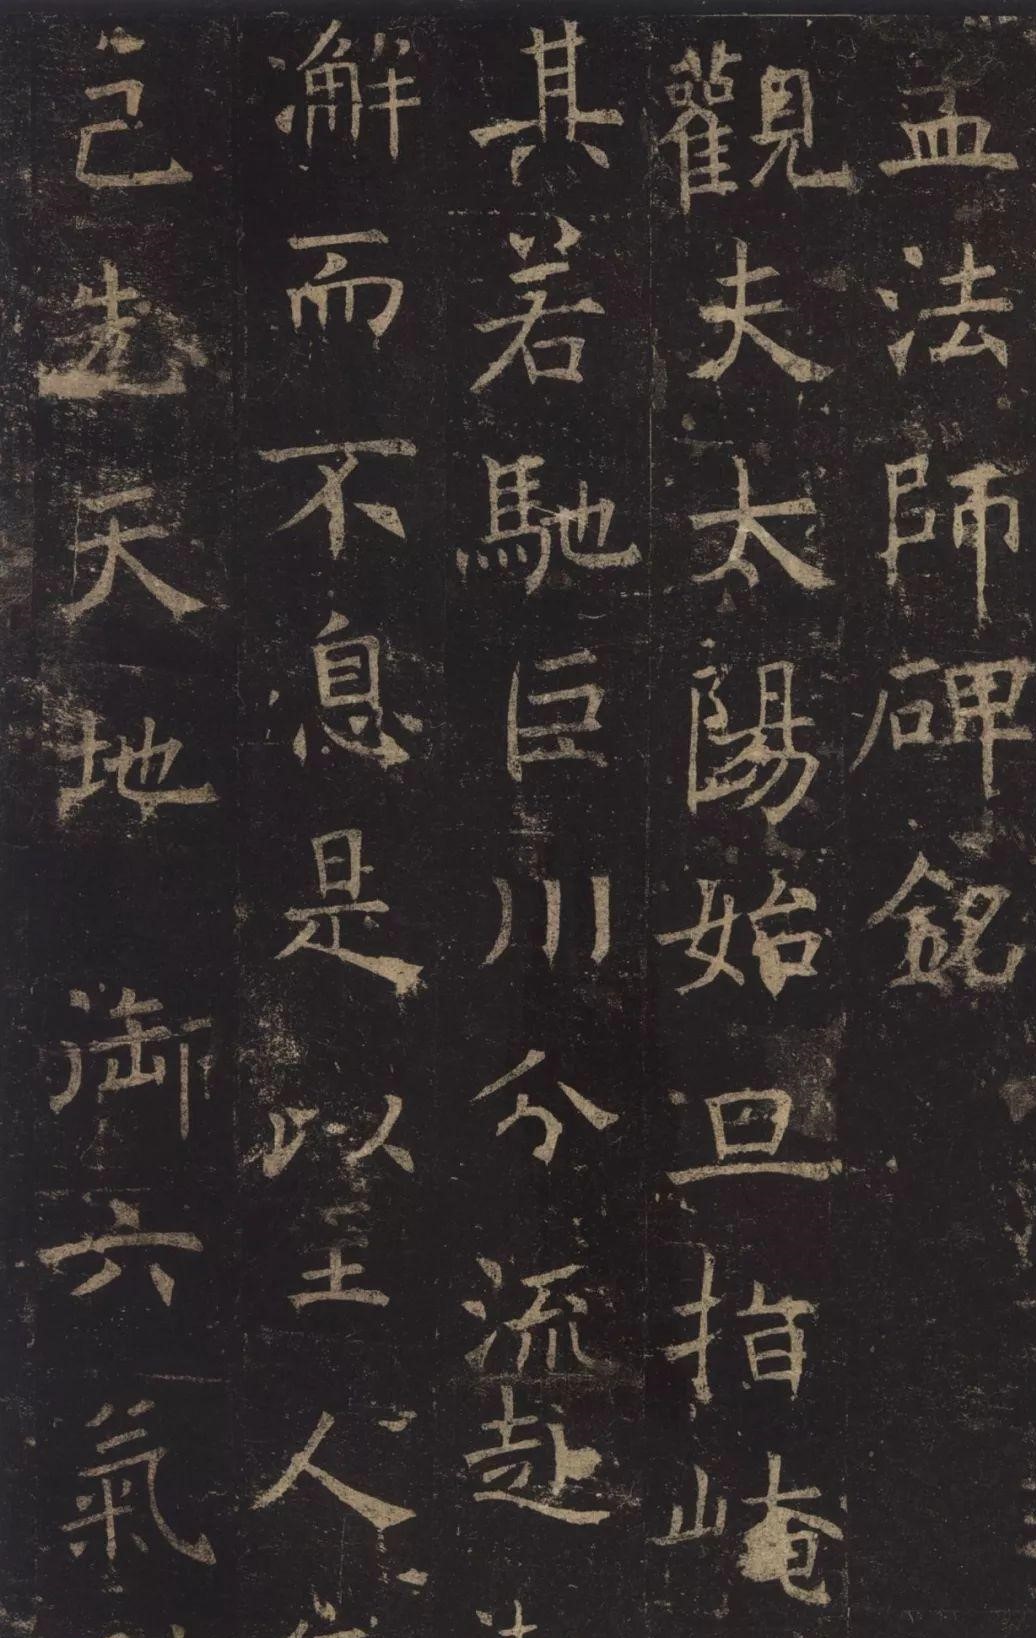 孟法師碑銘
觀夫太陽始旦指崦
其若馳巨川分流赴
澥而不息是以至人
己先天地御六氣